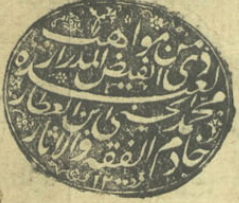 من مواهب
الفيض المدرار
محمد الحسيني ابن العطار
خادم الفقه والآثار